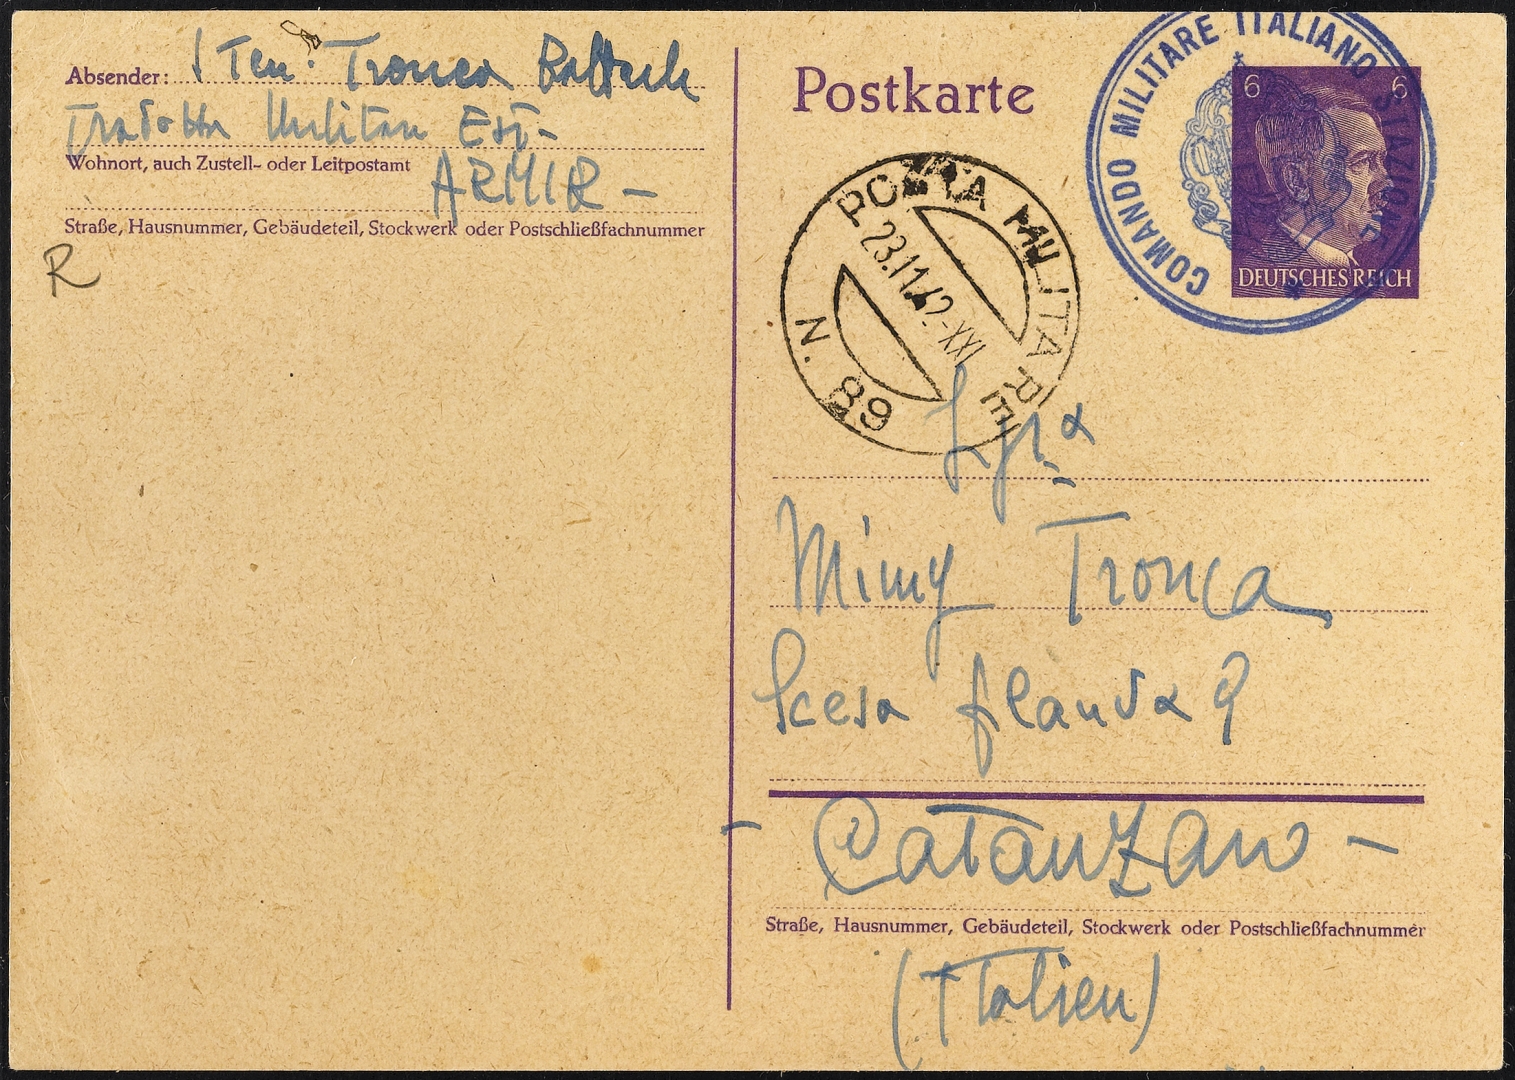 Absender: S Ten. Tronca Raffaele
Tradotta Militare Est-
Wohnort, auch Zustell- oder Leitpostamt
ARMIR -
Straße, Hausnummer, Gebäudeteil, Stockwerk oder Postschließfachnummer
R
Postkarte
COMANDO MILITARE ITALIANO STAZIONE
6 6
DEUTSCHES REICH
POSTA MILITARE
23.11.42-XXI
N. 89
Mimy Tronca
Scesa
- Catanzaro -
Straße, Hausnummer, Gebäudeteil, Stockwerk oder Postschließfachnummer
(Italien)